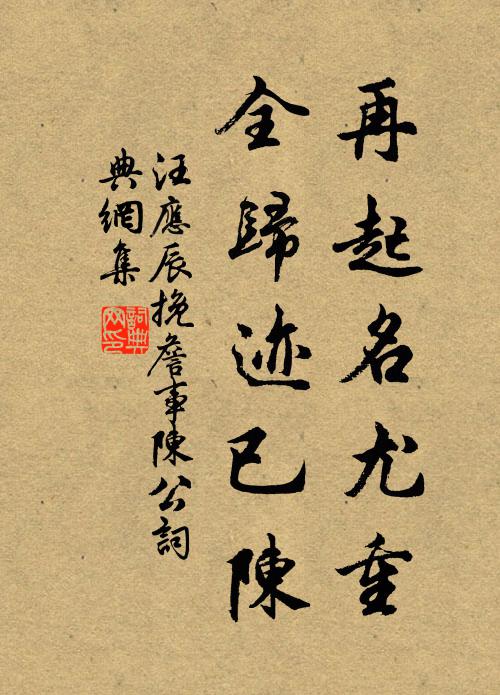 再起名尤重
全歸迹已陳
汪應辰挽詹事陳公詞
典網集
詞典网印